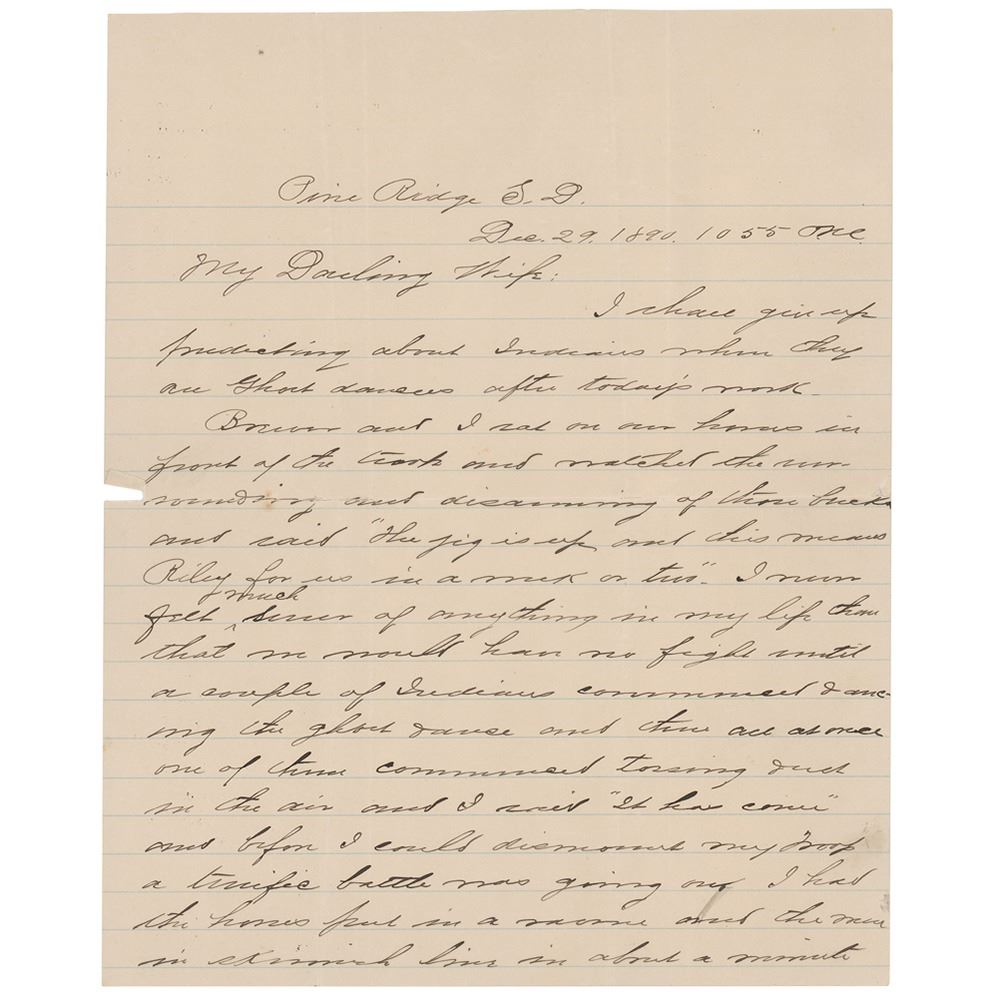 Pine Ridge S. D.
Dec. 29, 1890. 10 55 P.M.
My Darling Wife:
I shall give up
predicting about Indians when they
are Ghost dancers after today's work.
Brewer and I sat on our horses in
front of the troop and watched the sur-
rounding and disarming of those bucks
and said "the jig is up and this means
Riley for us in a week or two". I never
much
felt ^ surer of anything in my life than
that we would have no fight until
a couple of Indians commenced danc-
ing the ghost dance and then all at once
one of them commenced tossing dust
in the air and I said "It has come"
and before I could dismount my Troop
a terrific battle was going on. I had
the horses put in a ravine and the men
in skirmish line in about a minute